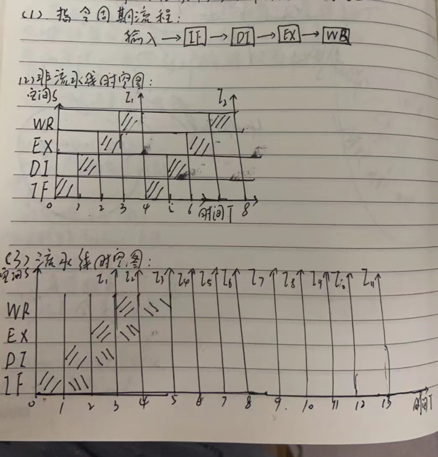 (1) 指令周期流程:
输入→IF→DI→EX→WB
(2) 非流水线时空图:
空间S I₁ I₂
WR
EX
DI
IF
0 1 2 3 4 5 6 时间T 8
(3) 流水线时空图:
空间S I₁ I₂ I₃ I₄ I₅ I₆ I₇ I₈ I₉ I₁₀ I₁₁
WR
EX
DI
IF
0 1 2 3 4 5 6 7 8 9 10 11 12 13 时间T